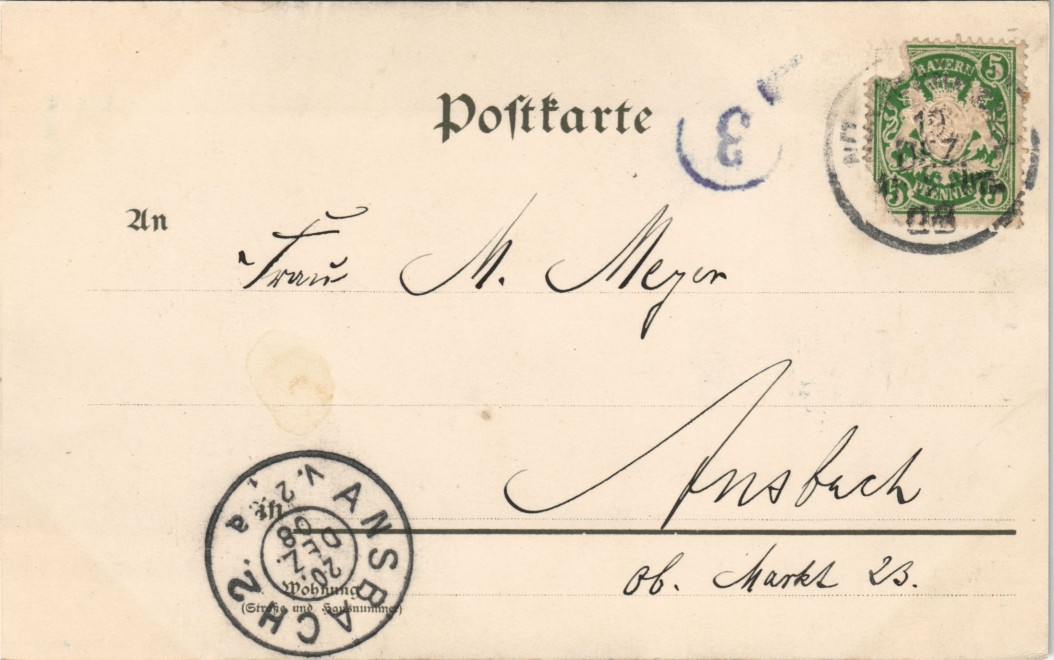 Postkarte
BAYERN 5
3
5 PFENNIG 5
DEZ.
98
An
Frau M. Meyer
Ansbach
ob. Markt 23.
ANSBACH 2.
20.
DEZ.
98
Wohnung
(Straße und Hausnummer)